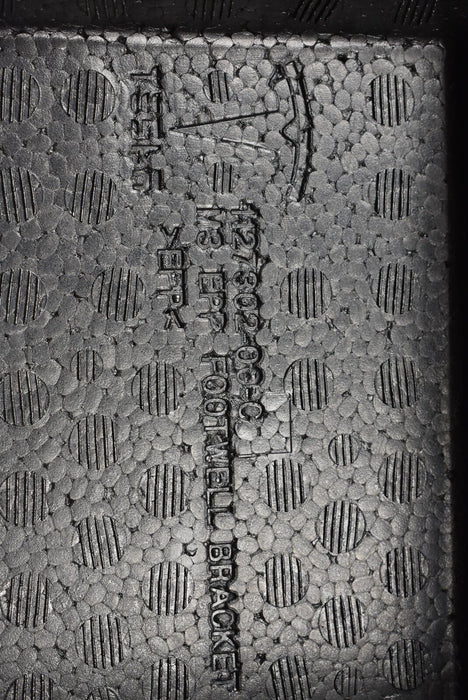 TESLA
1127302-00-C
M3 EPP FOOTWELL BRACKET
>EPP<